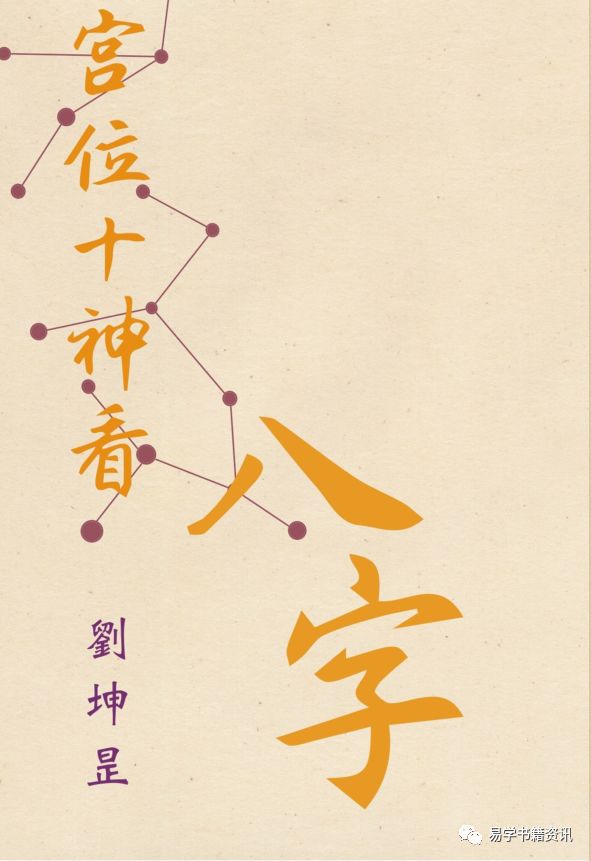 宫位十神看
八字
劉坤昰
易学书籍资讯